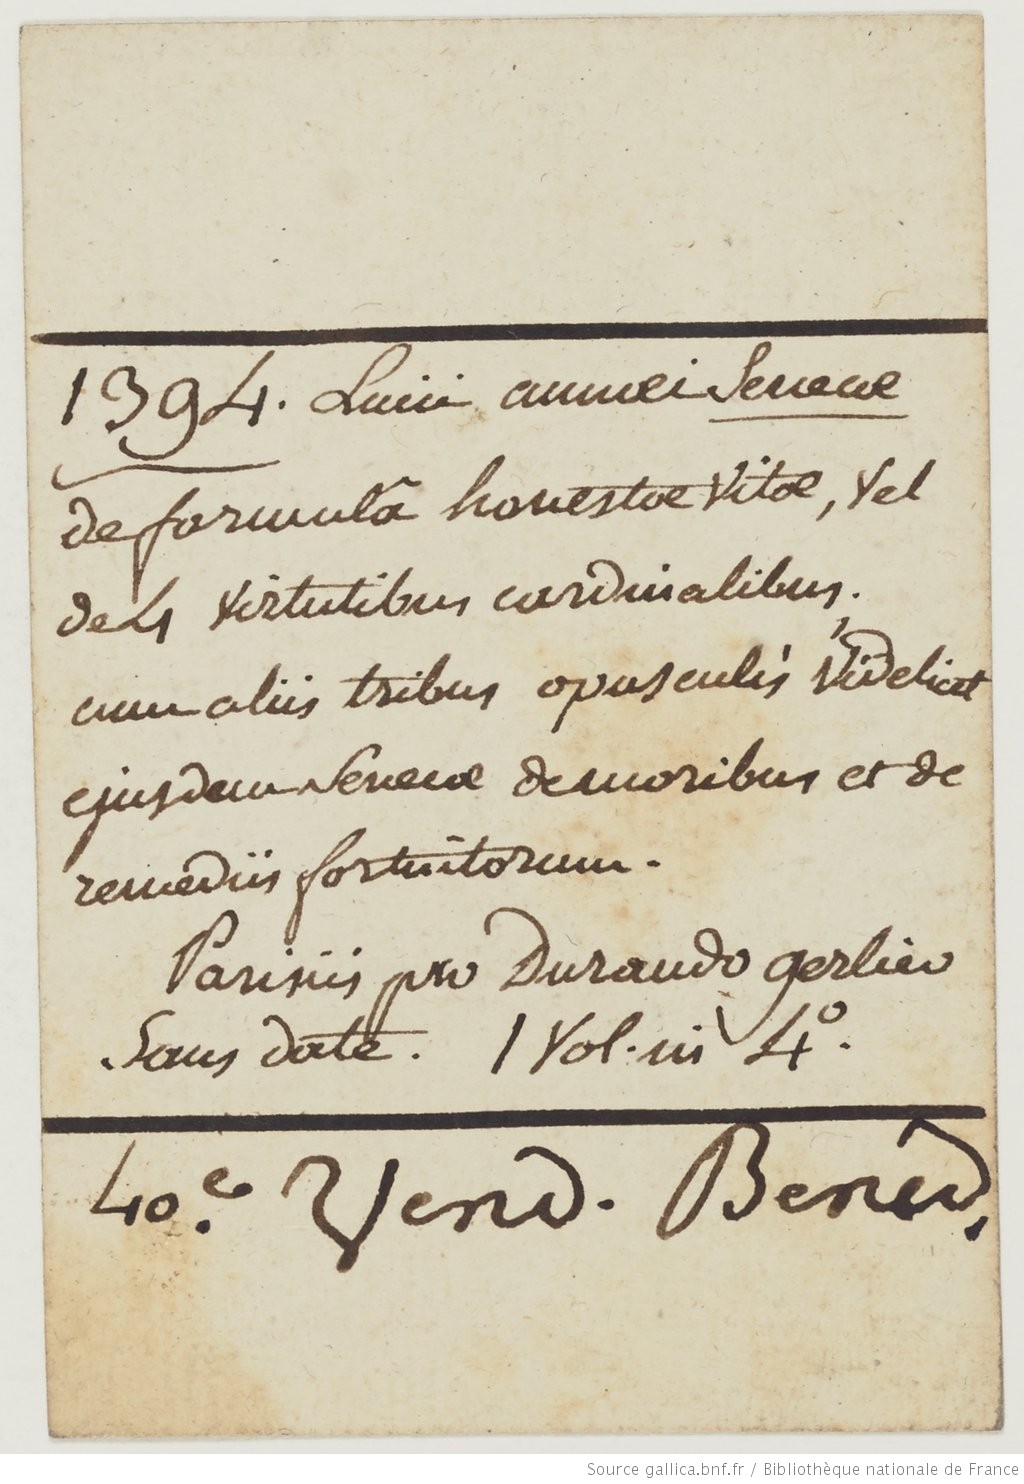 1394. Lucii annaei Senecae
de formulâ honestae vitae, vel
de 4 virtutibus cardinalibus.
cum aliis tribus opusculis videlicet
ejusdem Senecae de moribus et de
remediis fortuitorum.
Parisiis pro Durando gerlier
Sans date. 1 Vol. in 4°.
40.e Vend. Bened.
Source gallica.bnf.fr / Bibliothèque nationale de France